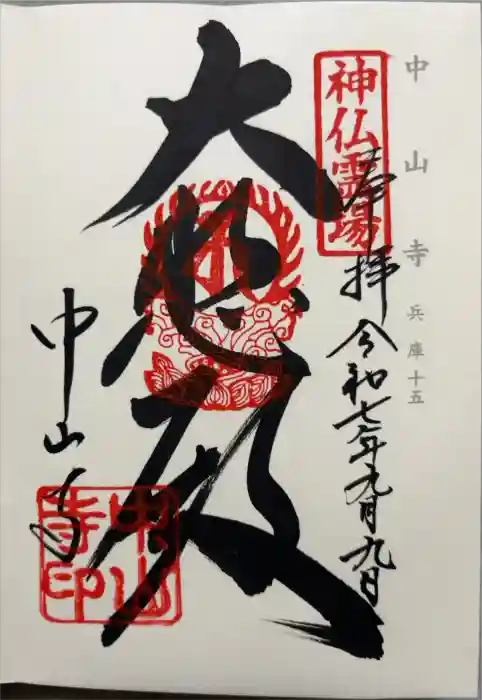 中山寺 兵庫十五
神仏霊場
奉拝 令和七年九月九日
大悲殿
中山寺
中山寺印